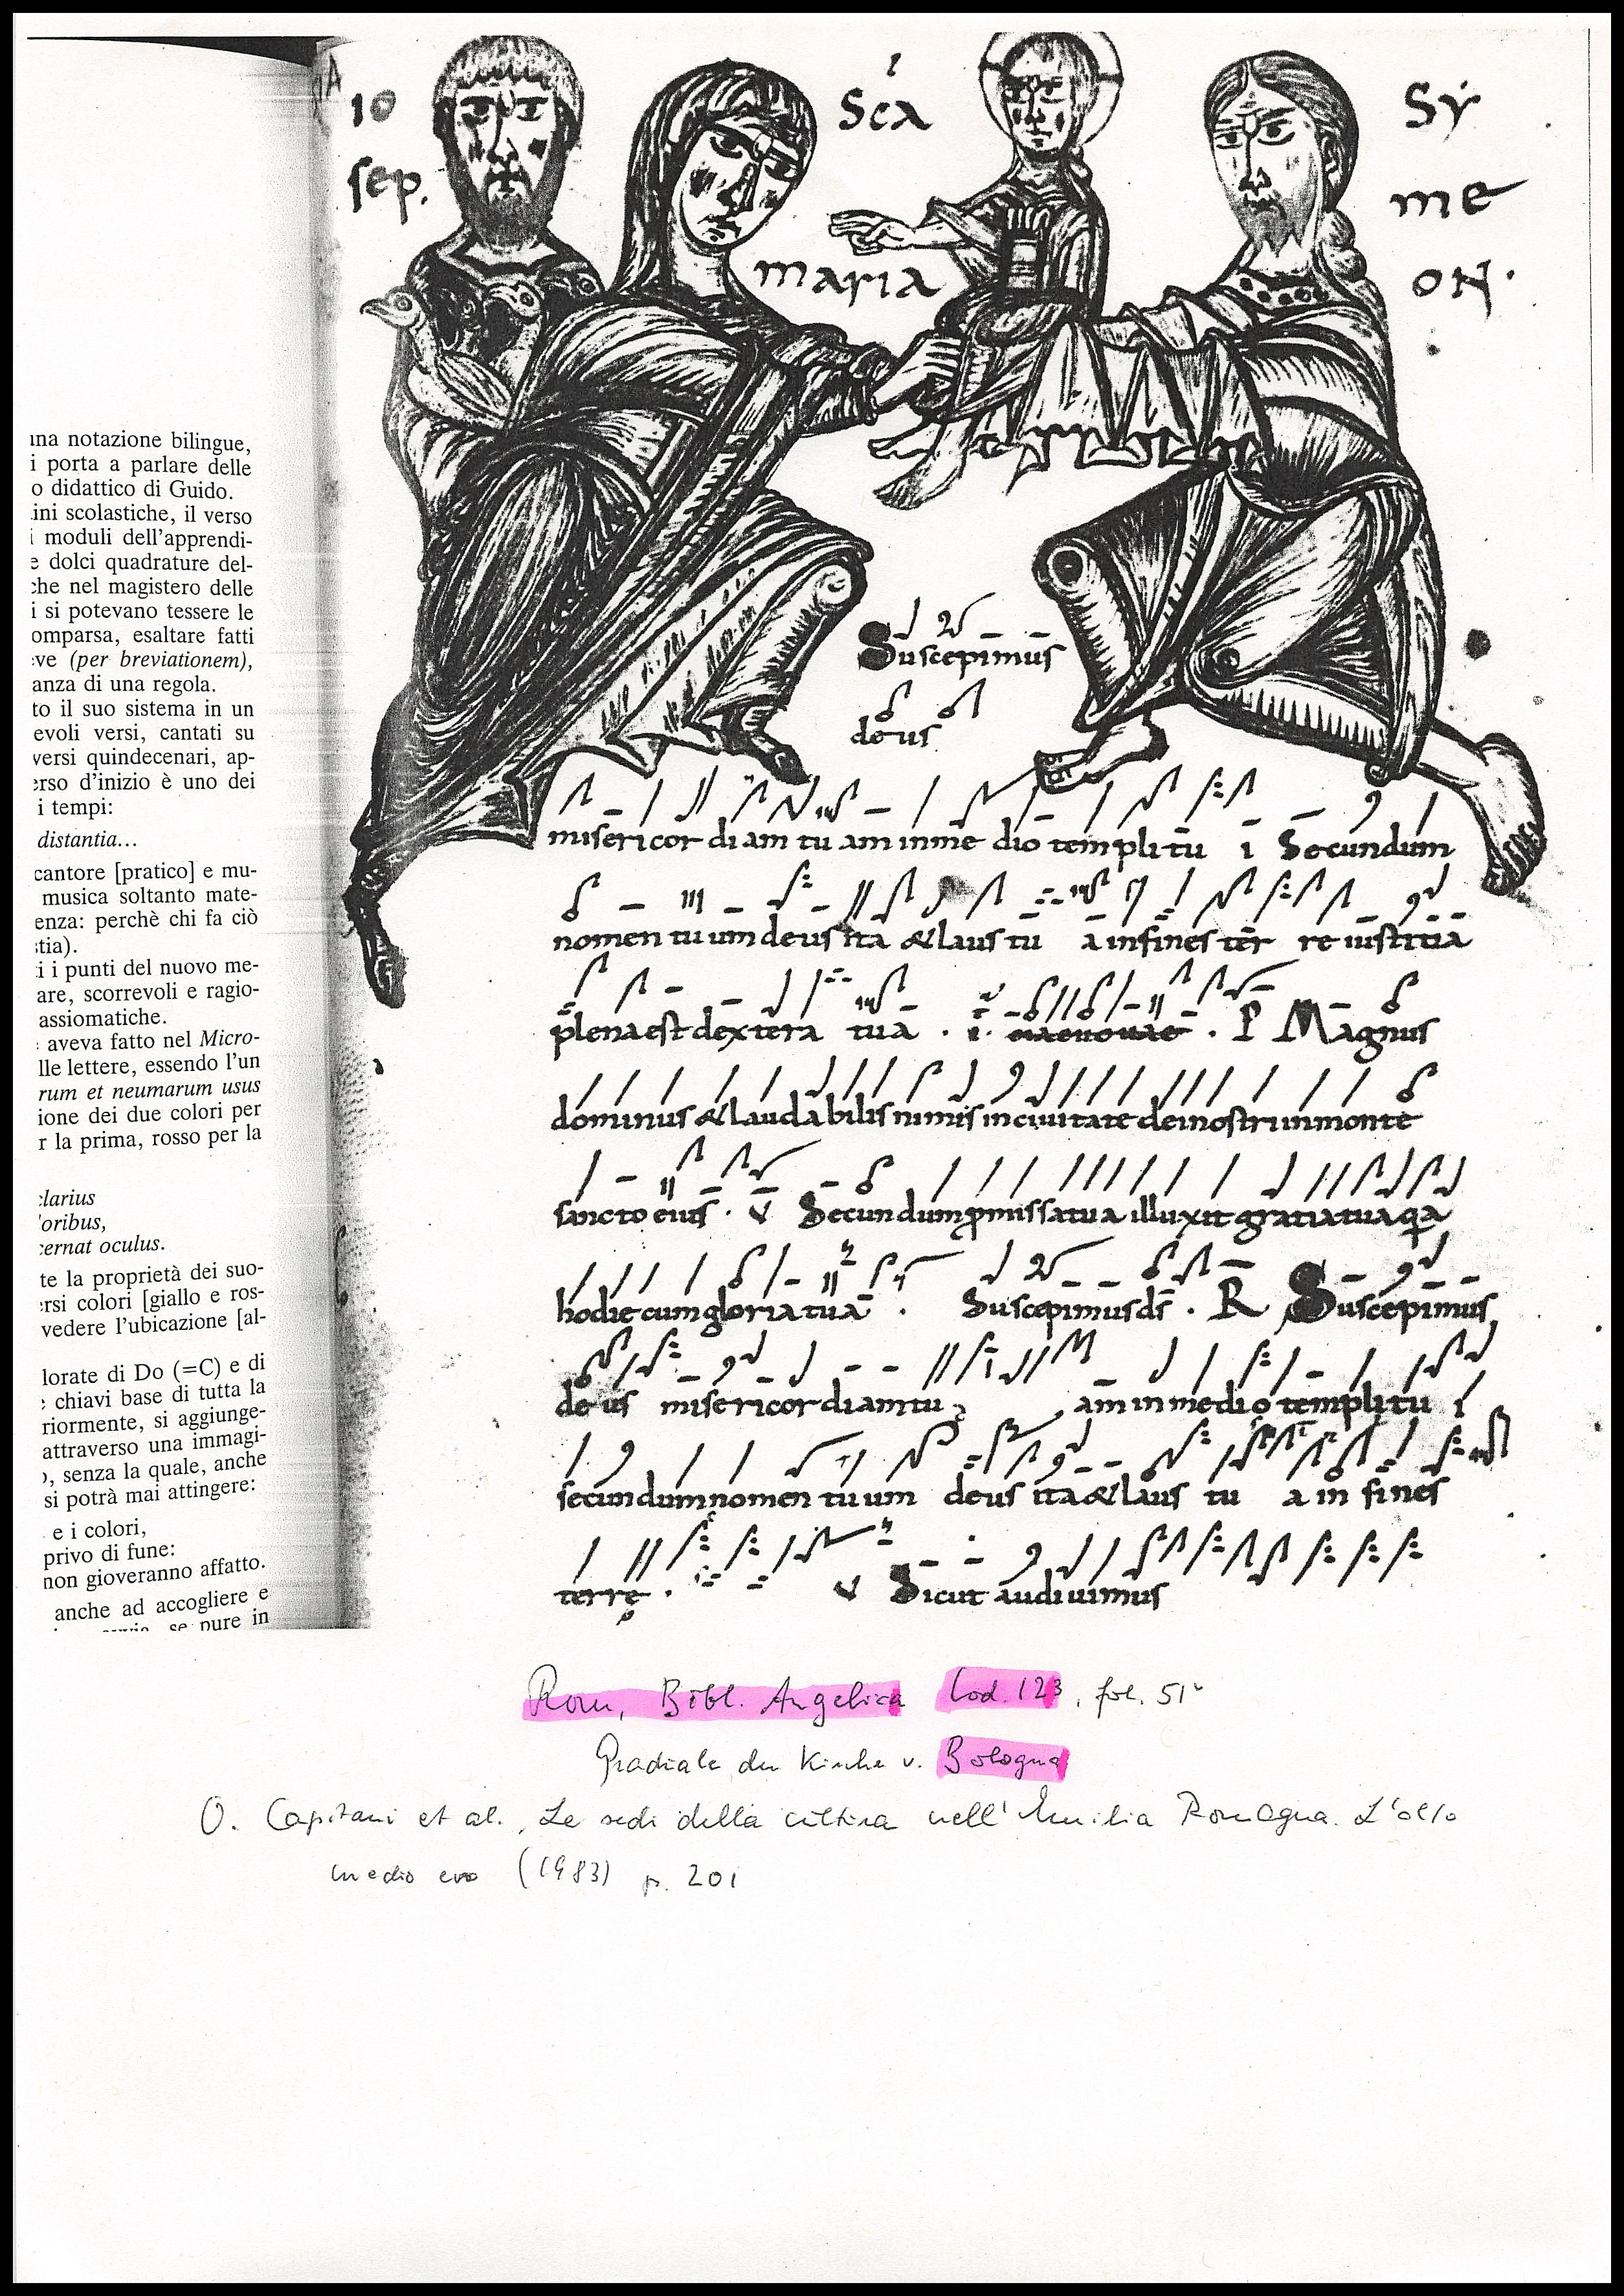 ina notazione bilingue,
i porta a parlare delle
o didattico di Guido.
ini scolastiche, il verso
i moduli dell'apprendi-
e dolci quadrature del-
che nel magistero delle
i si potevano tessere le
omparsa, esaltare fatti
eve (per breviationem),
anza di una regola.
to il suo sistema in un
evoli versi, cantati su
versi quindecenari, ap-
erso d'inizio è uno dei
i tempi:
distantia...
cantore [pratico] e mu-
musica soltanto mate-
enza: perchè chi fa ciò
stia).
i i punti del nuovo me-
are, scorrevoli e ragio-
assiomatiche.
aveva fatto nel Micro-
lle lettere, essendo l'un
rum et neumarum usus
ione dei due colori per
r la prima, rosso per la
clarius
oribus,
cernat oculus.
te la proprietà dei suo-
rsi colori [giallo e ros-
vedere l'ubicazione [al-
lorate di Do (=C) e di
chiavi base di tutta la
riormente, si aggiunge-
attraverso una immagi-
o, senza la quale, anche
si potrà mai attingere:
e i colori,
privo di fune:
non gioveranno affatto.
anche ad accogliere e
se pure in
IO
sep.
Sca
maria
SY
me
ON.
Suscepimus
deus
misericordiam tuam inme dio templi tu i Secundum
nomen tuum deus ita & laus tu a infines ter re iustitia
plena est dextera tua . i. euaeouae . P Magnus
dominus & laudabilis nimis inciuitate dei nostri inmonte
sancto eius . V Secundum pmissa tua illuxit gratia tua qa
hodie cum gloria tua . Suscepimus ds . R Suscepimus
deus misericordiam tu am in medio templi tu i
secundum nomen tuum deus ita & laus tu a in fines
terrę . V Sicut audiuimus
Rom, Bibl. Angelica Cod. 123, fol. 51v
Graduale der Kirche v. Bologna
O. Capitani et al., Le sedi della cultura nell' Emilia Romagna. L'alto
medio evo (1983) p. 201